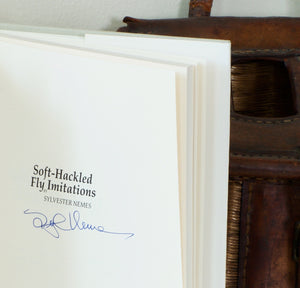 Soft-Hackled
Fly Imitations
SYLVESTER NEMES
Syl Nemes